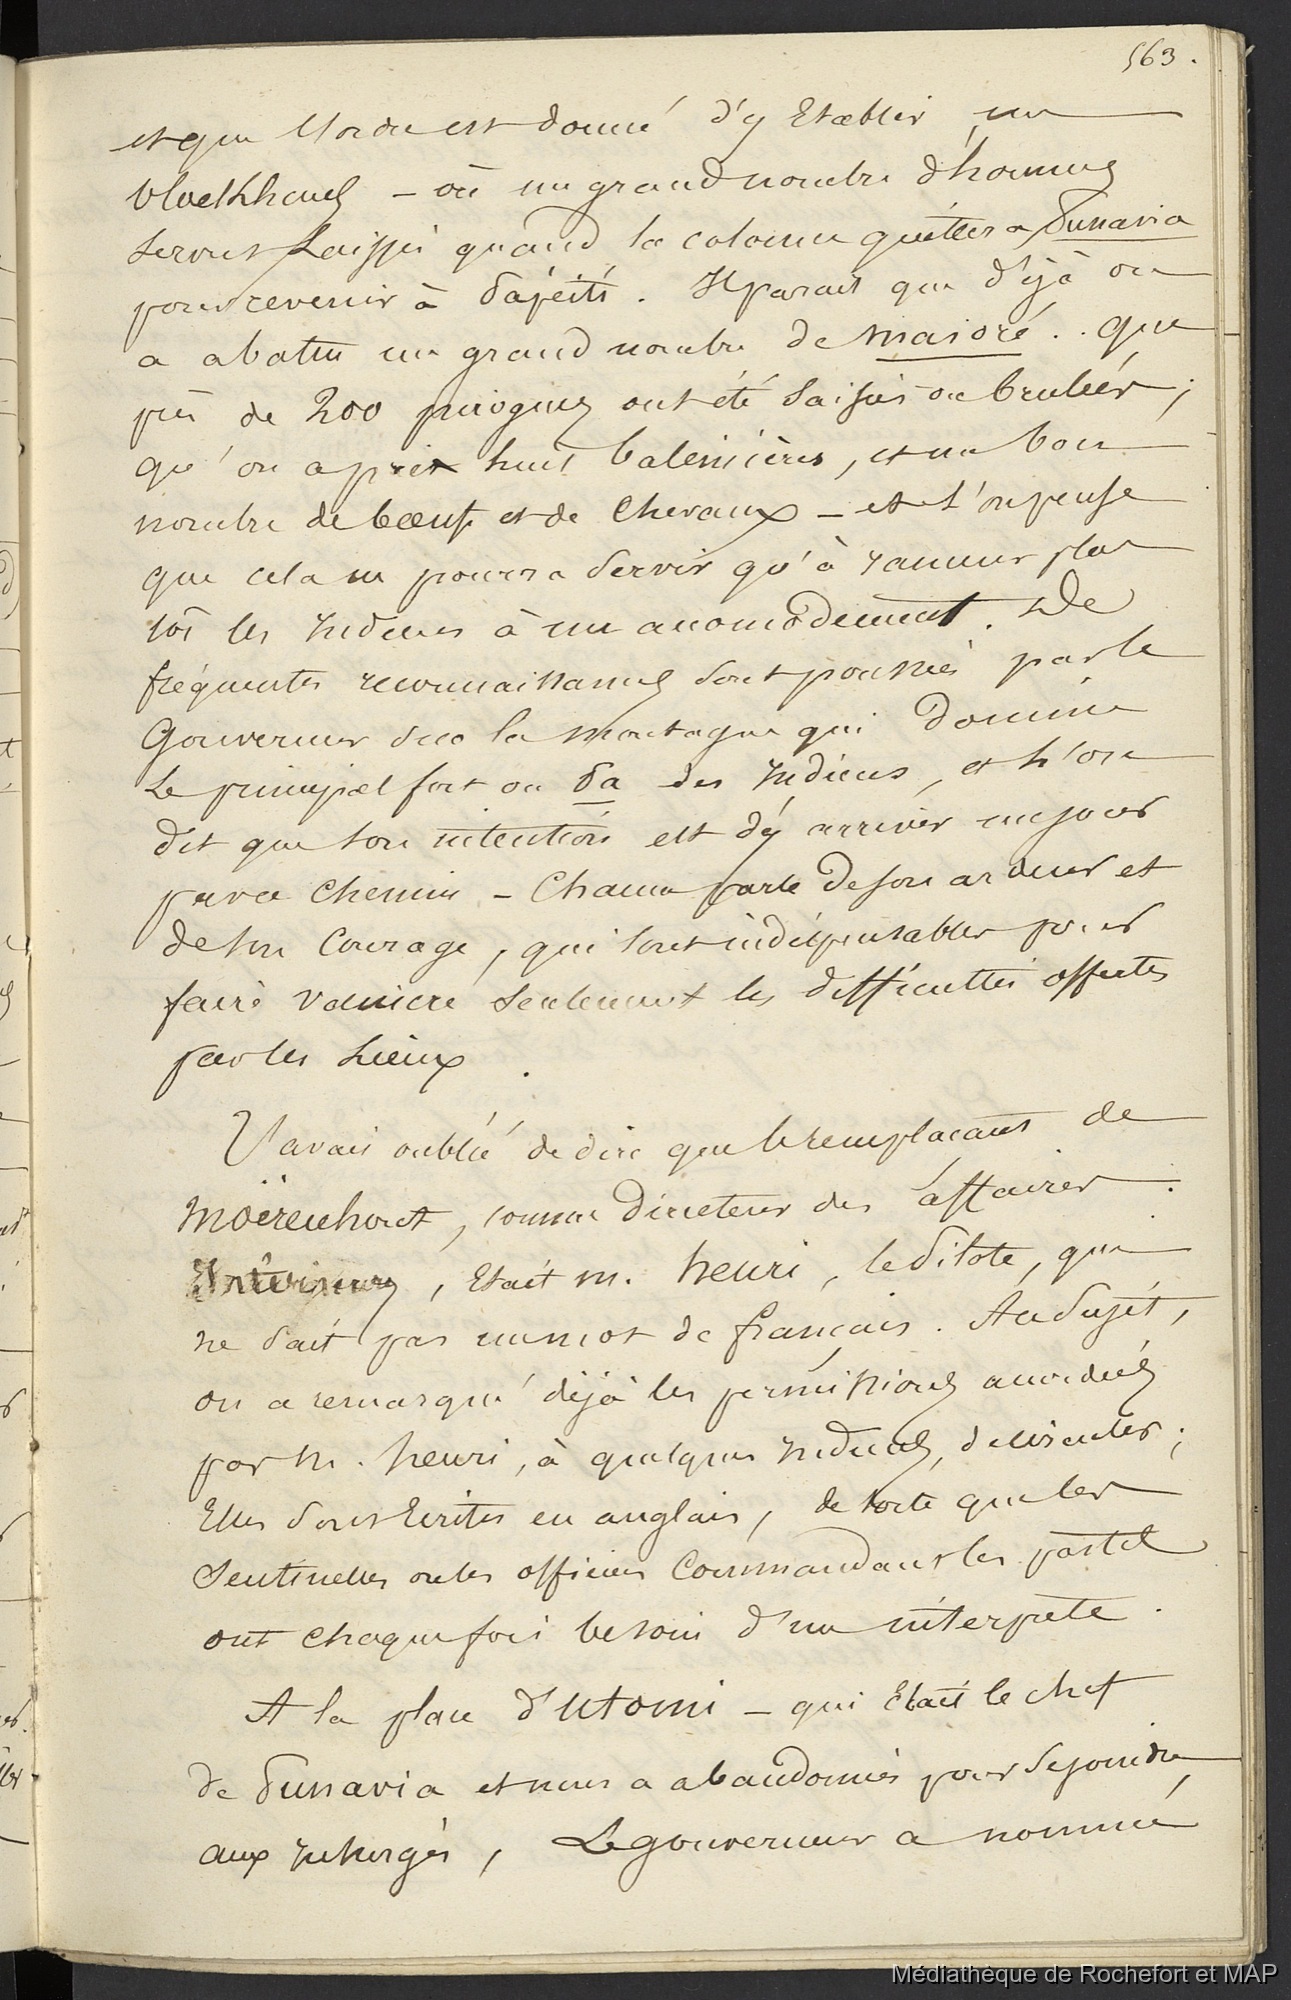 563.
et que l'ordre est donné d'y Etablir un
blockhaus – où un grand nombre d'hommes
seront laissés quand la colonne quittera Punavia
pour revenir à Papéiti. Il parait que déjà on
a abattu un grand nombre de maioré.. que
près de 200 pirogues ont été saisies ou brulées ;
qu'on a pris huit baleinières, et un bon
nombre de bœufs et de chevaux – et l'on pense
que cela ne pourra servir qu'à ramener plus
tôt les Indiens à un accomodement. De
fréquentes reconnaissances sont poussées par le
Gouverneur sur la montagne qui domine
le principal fort ou Pa des Indiens, et l'on
dit que son intention est d'y arriver un jour
par ce chemin – Chacun parle de son ardeur et
de son courage, qui sont indispensables pour
faire vaincre seulement les difficultés offertes
par les lieux.
J'avais oublié de dire que le remplaçant de
Moërenhout, comme directeur des affaires
Intérieures, Etait M. henri, le Pilote, qui
ne sait pas un mot de français. A ce sujet,
on a remarqué déjà les permissions accordées
par M. henri, à quelques Indiens, de circuler ;
Elles sont Ecrites en anglais, de sorte que les
Sentinelles ou les officiers Commandant les postes
ont chaque fois besoin d'un interprète.
A la place d'Utomi – qui Etait le chef
de Punavia et nous a abandonnés pour se joindre
aux Insurgés, Le gouverneur a nommé
Médiathèque de Rochefort et MAP